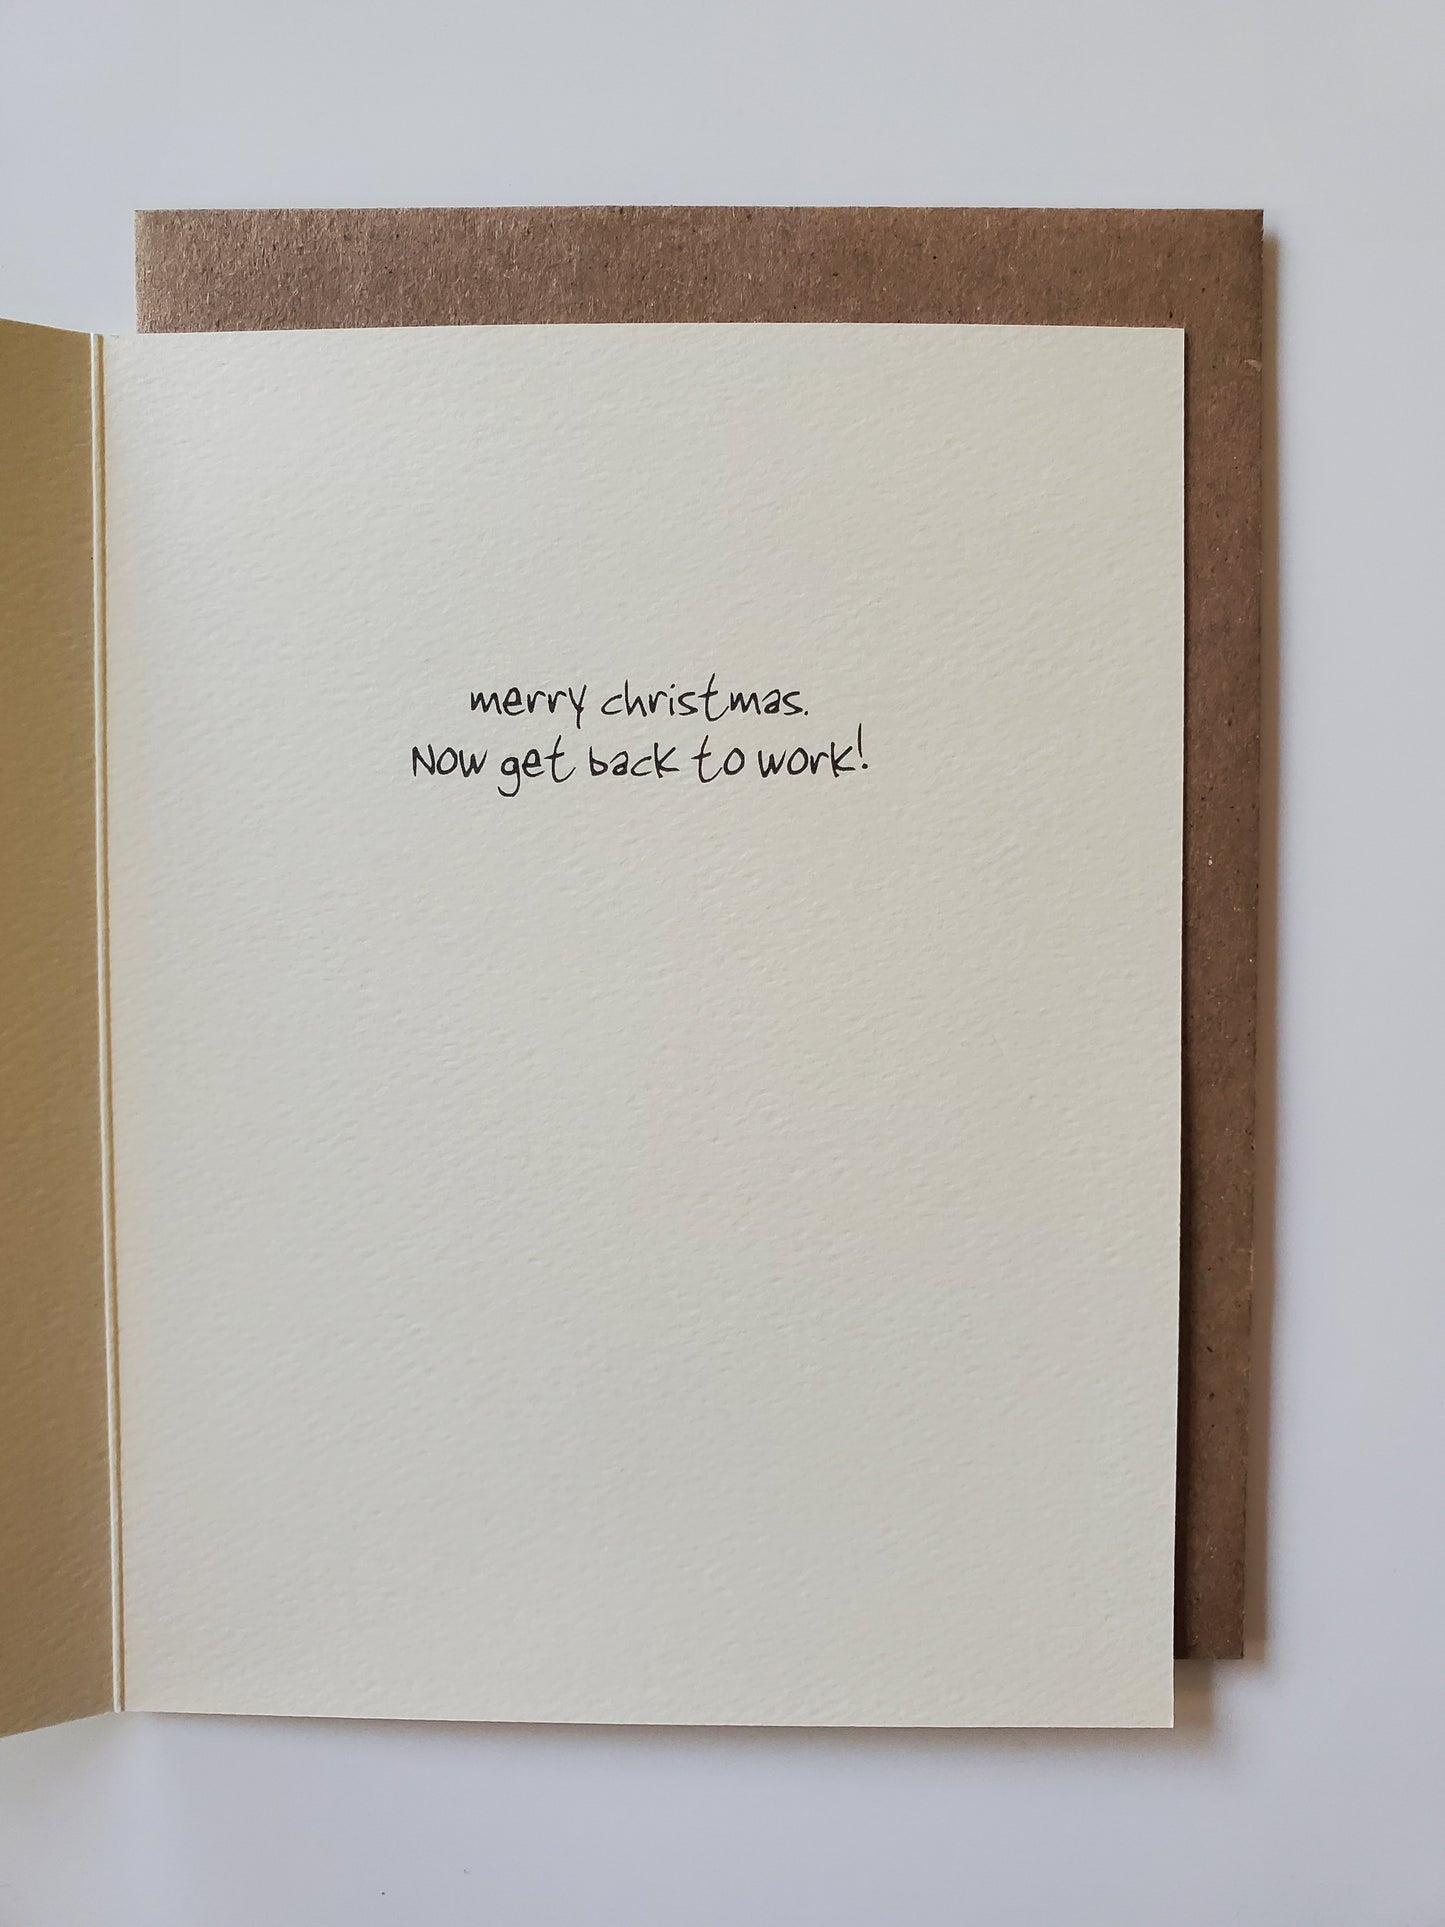 merry christmas.
Now get back to work!